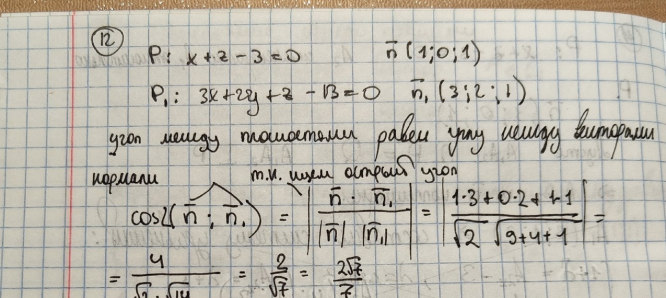 12
P: x + z - 3 = 0 n̄ (1; 0; 1)
P₁: 3x + 2y + z - 13 = 0 n̄₁ (3; 2; 1)
угол между плоскостями равен углу между векторами
нормали т.к. ищем острый угол
cos∠(n̄; n̄₁) = | n̄ · n̄₁ / |n̄| |n̄₁| | = | 1·3 + 0·2 + 1·1 / √2 √9+4+1 | =
= 4 / √2 · √14 = 2 / √7 = 2√7 / 7